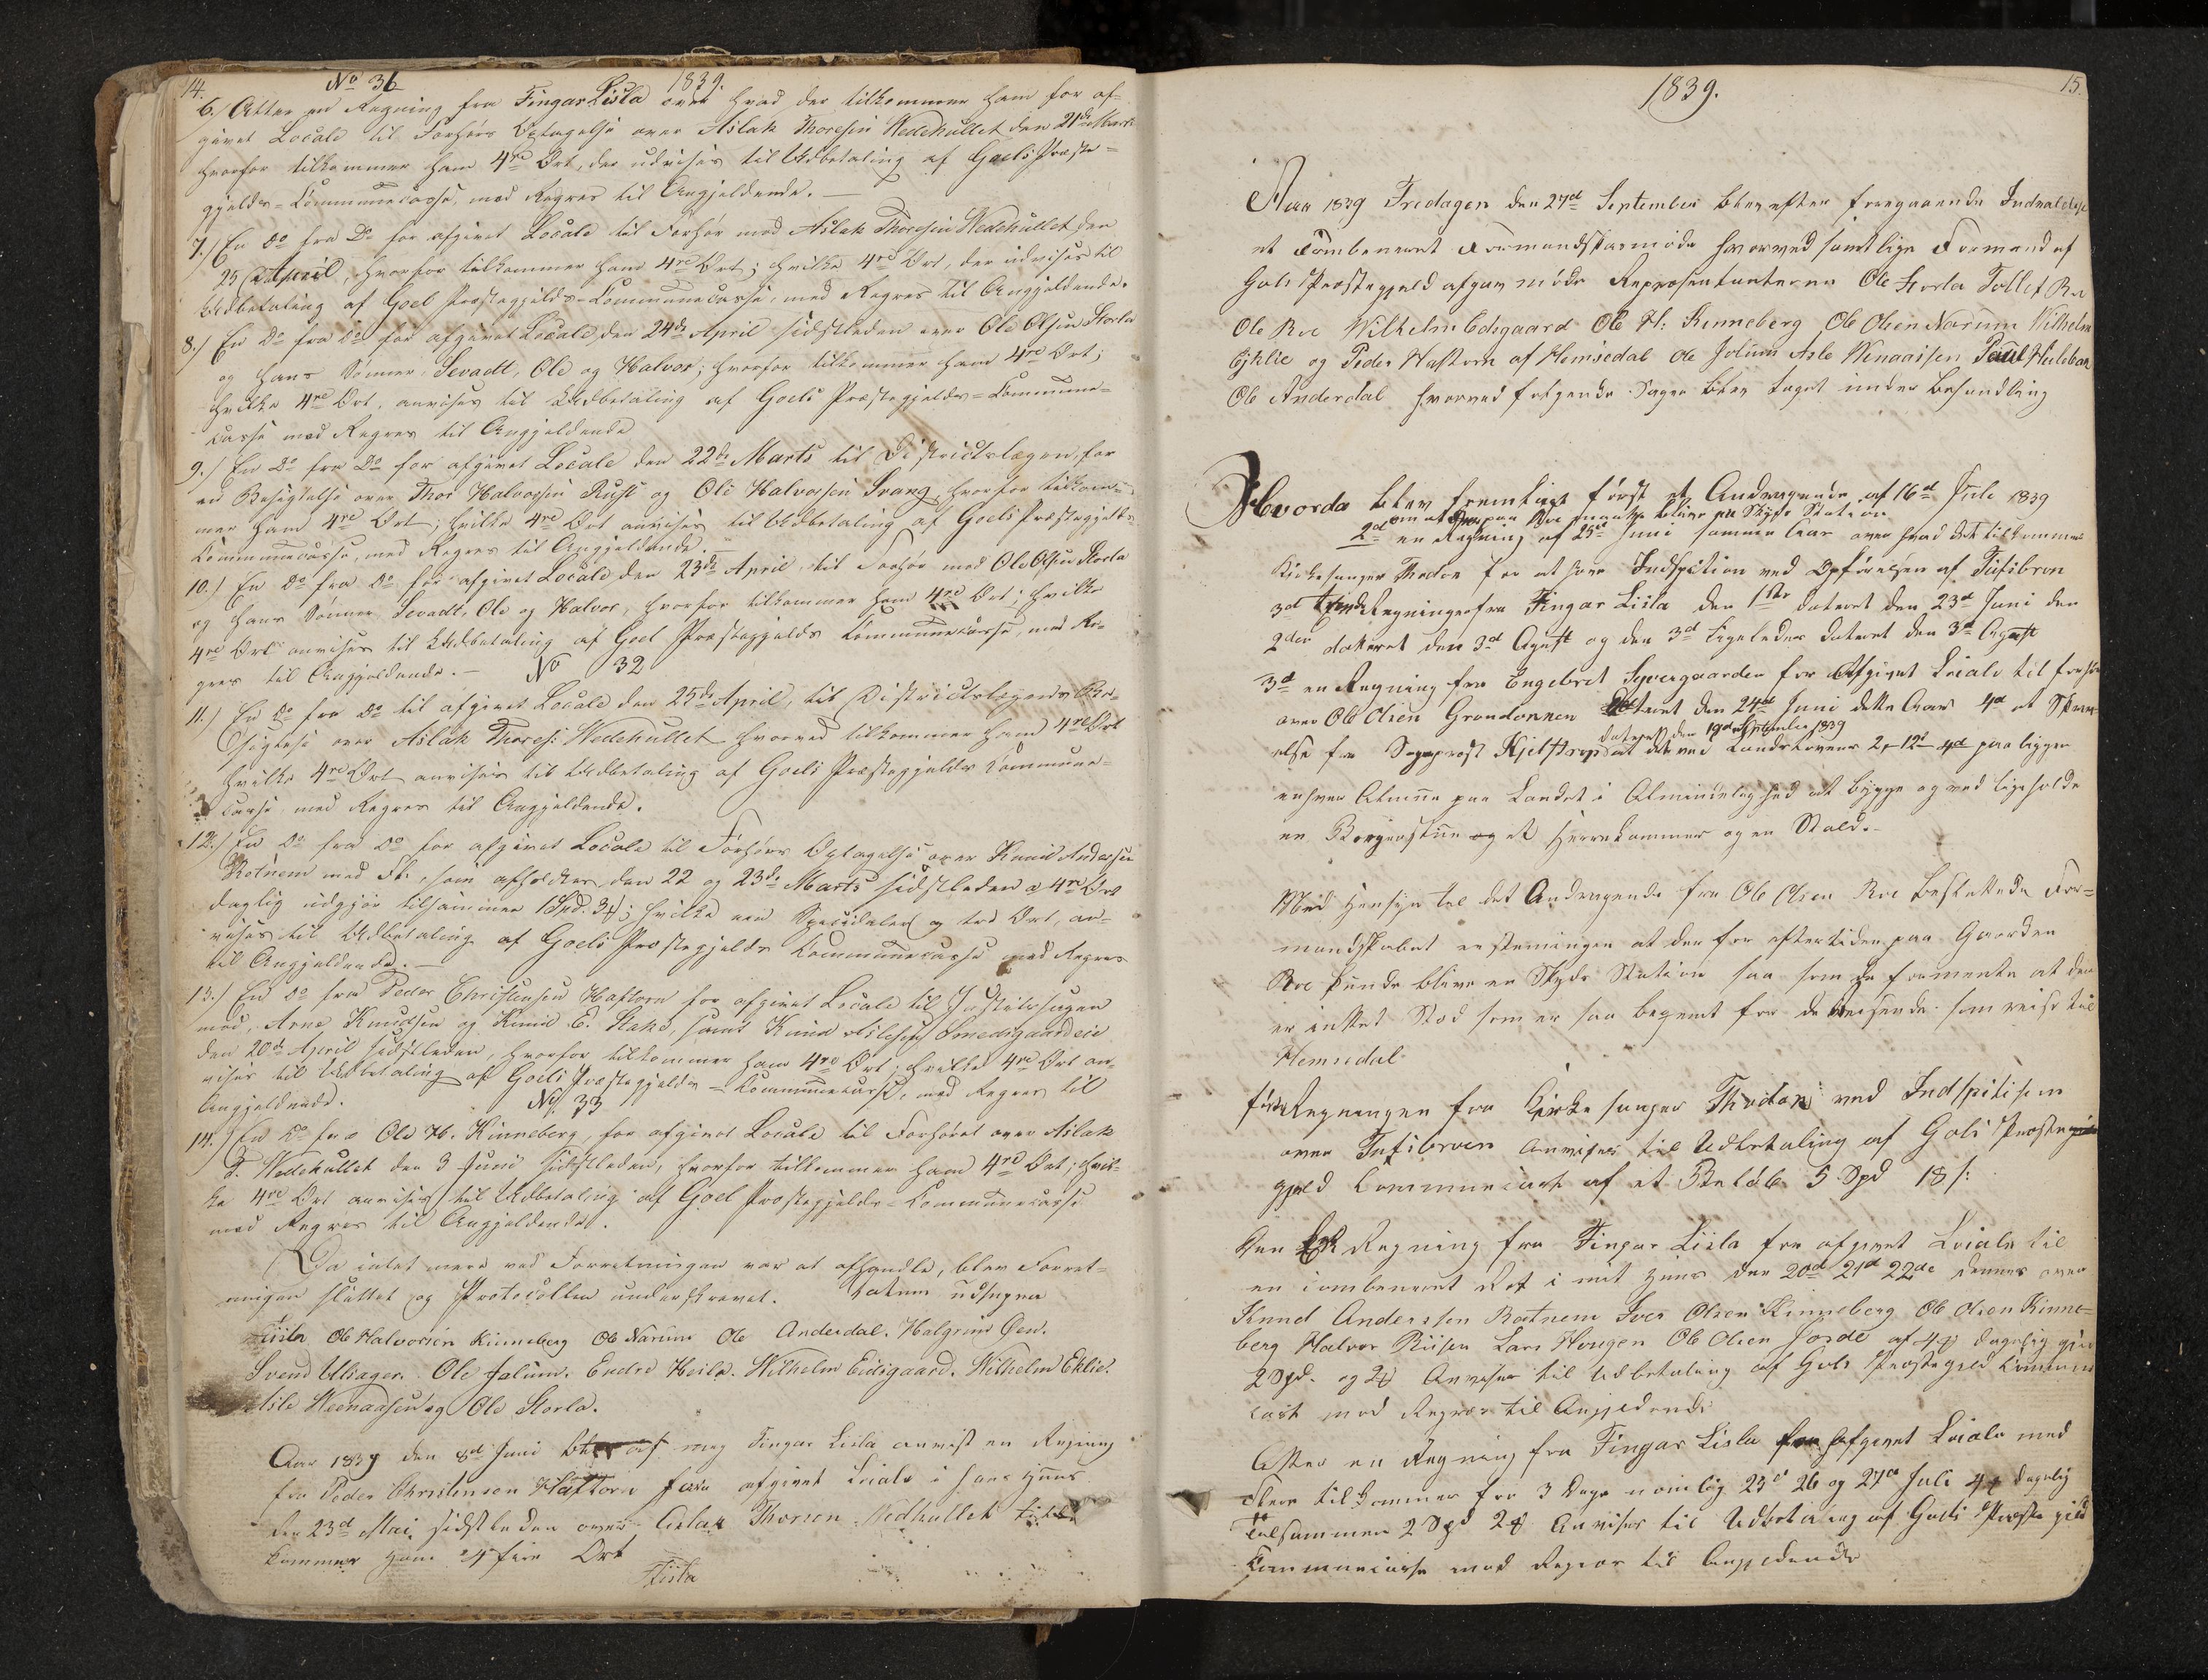 14. No 36 1839.
6.) Atter en Regning fra Fingar Lisla over hvad der tilkommer ham for af-
givet Locale til Forhørs Optagelse over Aslak Thoresen Wedehullet den 21de Marts
hvorfor tilkommer ham 4re Ort, der udvises til Udbetaling af Goels Præste-
gjelds-Communecasse, med Regres til Angjeldende. —
7.) En Do fra Do for afgivet Locale til Forhør med Aslak Thoresen Wedehullet den
25 April, hvorfor tilkommer ham 4re Ort; hvilke 4re Ort, der udvises til
Udbetaling af Goel Præstegjelds-Communecasse, med Regres til Angjeldende.
8.) En Do fra Do for afgivet Locale den 24de April sidstleden over Ole Olsen Storla
og hans Sønner, Sevadt, Ole og Halvor; hvorfor tilkommer ham 4re Ort;
hvilke 4re Ort, anvises til Udbetaling af Goels Præstegjelds-Commune-
casse med Regres til Angjeldende
9.) En Do fra Do for afgivet Locale den 22de Marts til Districtslægen for
en Besigtelse over Thor Halvorsen Rust og Ole Halvorsen Svang, hvorfor tilkom-
mer ham 4re Ort; hvilke 4re Ort anvises til Udbetaling af Goels Præstegjelds
Communecasse, med Regres til Angjeldende. —
10.) En Do fra Do for afgivet Locale den 23de April, til Forhør med Ole Olsen Storla
og hans Sønner Sevadt, Ole og Halvor, hvorfor tilkommer ham 4re Ort; hvilke
4re Ort anvises til Udbetaling af Goel Præstegjelds Communecasse, med Re-
gres til Angjeldende. — No 32
11.) En Do fra Do til afgivet Locale den 25de April, til Districtslægens Be-
sigtelse over Aslak Thores: Wedehullet hvorved tilkommer ham 4re Ort
hvilke 4re Ort anvises til Udbetaling af Goels Præstegjelds Commune-
casse med Regres til Angjeldende.
12.) En Do fra Do for afgivet Locale til Forhørs Optagelse over Knud Andersen
Rotnem med Fl., som afholdtes den 22 og 23de Marts sidstleden a 4re Ort
daglig udgjør tilsammen 1 Spd. 3; hvilke een Speciedaler og tre Ort, an-
vises til Udbetaling af Goels Præstegjelds Communecasse med Regres
til Angjeldende. —
13.) En Do fra Peder Christensen Haftorn for afgivet Locale til Justitssagen
mod, Arne Knudsen og Knud E. Stake, samt Knud Nilssen Smedsgaardeie
den 20de April sidstleden, hvorfor tilkommer ham 4re Ort; hvilke 4re Ort an-
vises til Udbetaling af Goels Præstegjelds-Communecasse, med Regres til
Angjeldende. No. 33
14.) En Do fra Ole H. Kinneberg, for afgivet Locale til Forhøret over Aslak
T. Wedehullet den 3 Juni sidstleden, hvorfor tilkommer ham 4re Ort; hvil-
ke 4re Ort anvises til Udbetaling af Goel Præstegjelds-Communecasse
med Regres til Angjeldende.
Da intet mere ved Forretningen var at afhandle, blev Forret-
ningen sluttet og Protocollen underskrevet. Datum udsupra
Lisla Ole Halvorsen Kinneberg Ole Narum Ole Anderdal. Halgrim Øen.
Svend Ulsager. Ole Jalum. Endre Heslo. Wilhelm Eidsgaard. Wilhelm Eklie.
Asle Weenaasen og Ole Storla.
Aar 1839 den 8d Juni blev af meg Fingar Lisla anvist en Regning
fra Peder Christensen Haftorn for afgivet Locale i hans Huus
den 23d Mai sidstleden over Aslak Thorsen Wedhullet til
kommer ham 4 fire Ort
Lisla
1839. 15.
Aar 1839 Fredagen den 27d September blev efter foregaaende Indvalelse
et Combeneret Formandskasmøde hvorved samtlige Formænd af
Gols Præstegjeld afgav møde Representanterne Ole Storla Tollef Roe
Ole Roe Wilhelm Edsgaard Ole H: Kinneberg Ole Olsen Narum Wilhelm
Ejklie og Peder Haftorn af Hemsedal Ole Jolum Asle Wenaasen Paul Huleback
Ole Anderdal hvorved følgende Sager blev taget under Behandling
Hvorda blev fremlagt først et Andragende af 16d Juli 1839
om at Gaarden Roe maatte blive en Skyds Station
2d en Regning af 25d Juni samme Aar over hvad det tilkommer
Kirkesanger Thodor for at have Indspection ved Opførelsen af Tufsibroen
3d Regninger fra Fingar Lisla den 1ste dateret den 23d Juni den
2den dateret den 3d Agust og den 3d ligeledes dateret den 3d Agust
3d en Regning fra Engebret Syvergaarden for Afgivet Locale til forhør
over Ole Olsen Grøndonnen Dateret den 24d Juni dette Aar 4d et Skriv-
else fra Sogneprest Kjelstrup dateret den 19d September 1839 at det ved Landslovens 2-12-4d paaligger
enhver Almue paa Landet i Almindelighed at bygge og ved ligeholde
en Borgerstue og et Herrekammer og en Stald.
Med Hensyn til det Andragende fra Ole Olsen Roe besluttede For-
mandskabet enstemingen at den for eftertiden paa Gaarden
Roe kunde blive en Skyds Station saa som de formente at der
er intet Stæd som er saa begvemt for de Reisende som reise til
Hemsedal
første Regningen fra Kirkesanger Thodor ved Indspitisen
over Tufsibroen Anvises til Udbetaling af Gols Præste
gjeld Communecase af et Beløb 5 Spd 18 s:
Den Regning fra Fingar Lisla for afgivet Locale til
en combeneret Ret i mit Huus den 20d 21d 22de dennes over
Knud Anderssen Rotnem Iver Olsen Kinneberg Ole Olsen Kinne-
berg Halvor Riisen Lars Haugen Ole Olsen Jorde af 4 dagelig gjør
2 Spd. og 2 Anvises til Udbetaling af Gols Præstegield Commune
case med Regres til Angjeldende
Atter en Regning fra Fingar Lisla for Afgivet Locale med
Flere tilkommer for 3 Dage nemlig 25d 26 og 27d Juli 4 dagelig
Tilsammen 2 Spd 2 Anvises til Udbetaling af Gols Præstegield
Communecasse med Regres til Angjeldende